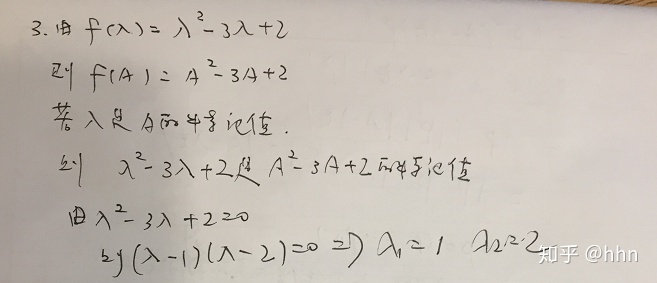 3. 由 f(λ) = λ²-3λ+2
则 f(A) = A²-3A+2
若 λ是A的特征值.
则 λ²-3λ+2是A²-3A+2的特征值
由 λ²-3λ+2=0
则(λ-1)(λ-2)=0 => λ₁=1 λ₂=2
知乎 @hhn